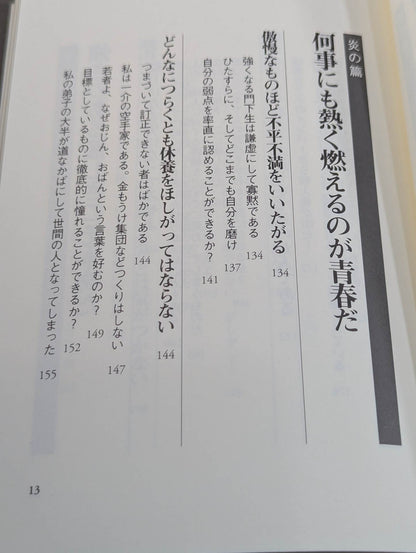 炎の篇
何事にも熱く燃えるのが青春だ
傲慢なものほど不平不満をいいたがる 134
強くなる門下生は謙虚にして寡黙である 134
ひたすらに、そしてどこまでも自分を磨け 137
自分の弱点を率直に認めることができるか? 141
どんなにつらくとも休養をほしがってはならない 144
つまづいて訂正できない者はばかである 144
私は一介の空手家である。金もうけ集団などつくりはしない 147
若者よ、なぜおじん、おばんという言葉を好むのか? 149
目標としているものに徹底的に憧れることができるか? 152
私の弟子の大半が道なかばにして世間の人となってしまった 155
13